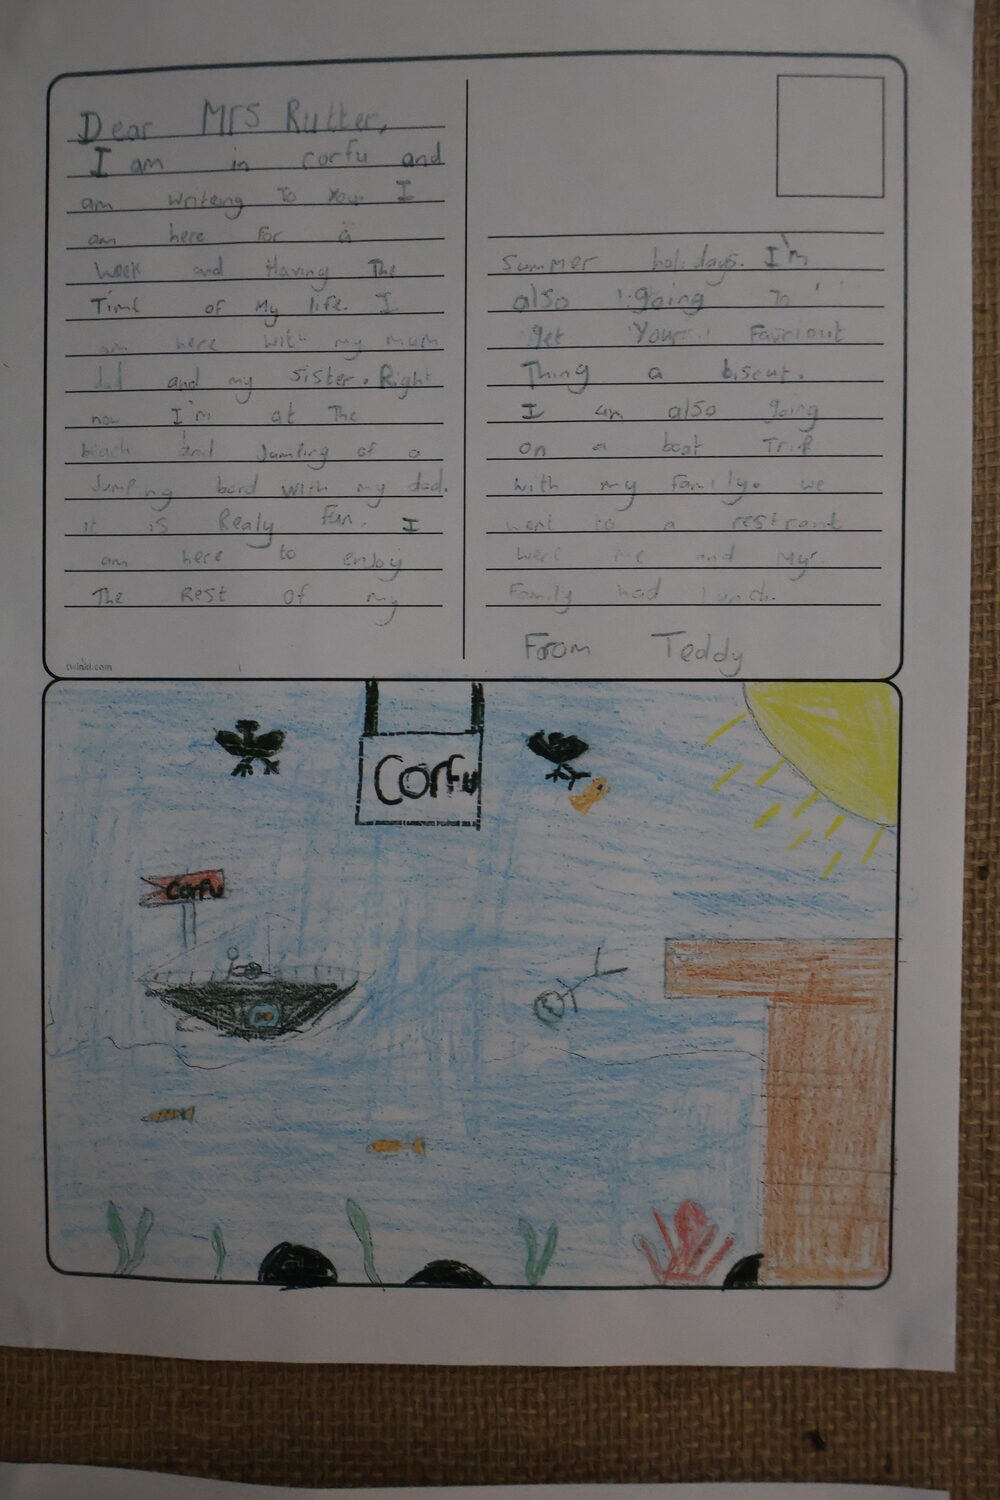 Dear Mrs Rutter,
I am in corfu and
am writeing to you. I
am here for a
week and Having The
Time of My life. I
am here with my mum
dad and my sister. Right
now I'm at The
beach and Jumping of a
Jumping bord with my dad.
it is Realy Fun. I
am here to enjoy
The REST OF my
Summer holidays. I'm
also going To
get Your Favriout
Thing a biscut.
I am also going
on a boat Trip
with my family. we
went to a restrant
were me and My
Family had lunch.
From Teddy
twinkl.com
Corfu
Corfu